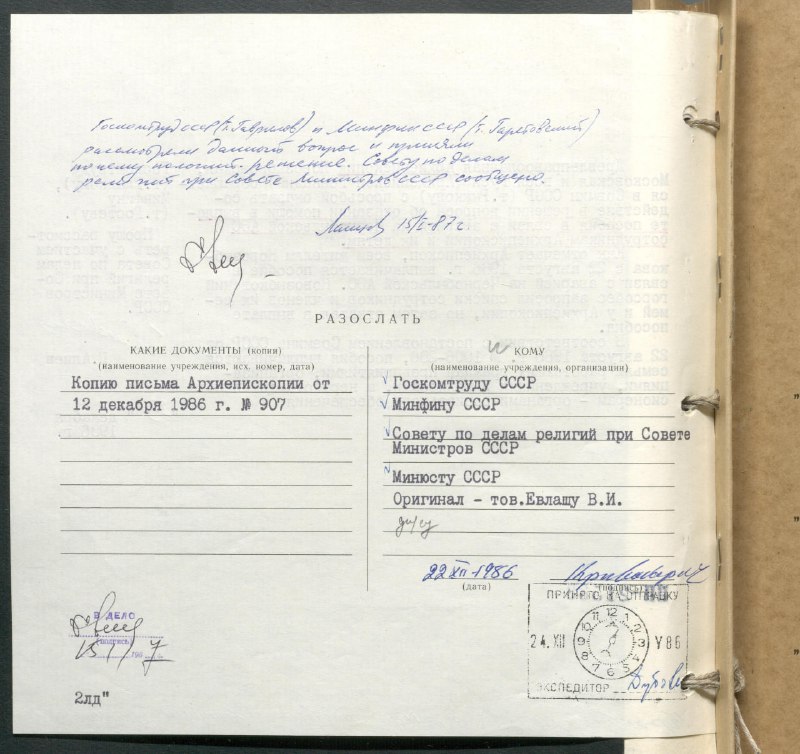 Госкомтруд ссср (т. Гаврилов) и Минфин ссср (т. Гаретовский)
рассмотрели данный вопрос и приняли
по нему положит. решение. Совету по делам
религий при Совете Министров ссср сообщено.
15/I-87 г.
РАЗОСЛАТЬ
КАКИЕ ДОКУМЕНТЫ (копии)
(наименование учреждения, исх. номер, дата)
Копию письма Архиепископии от
12 декабря 1986 г. № 907
КОМУ
(наименование учреждения, организации)
Госкомтруду СССР
Минфину СССР
Совету по делам религий при Совете
Министров СССР
Минюсту СССР
Оригинал - тов.Евлашу В.И.
22 XII 1986
(дата)
(подпись)
В ДЕЛО
(подпись)
15 I 1987
ПРИНЯТО НА ОТПРАВКУ
24. XII 86
12 1 2 3 4 5 6 7 8 9 10 11
ЭКСПЕДИТОР
2лд"